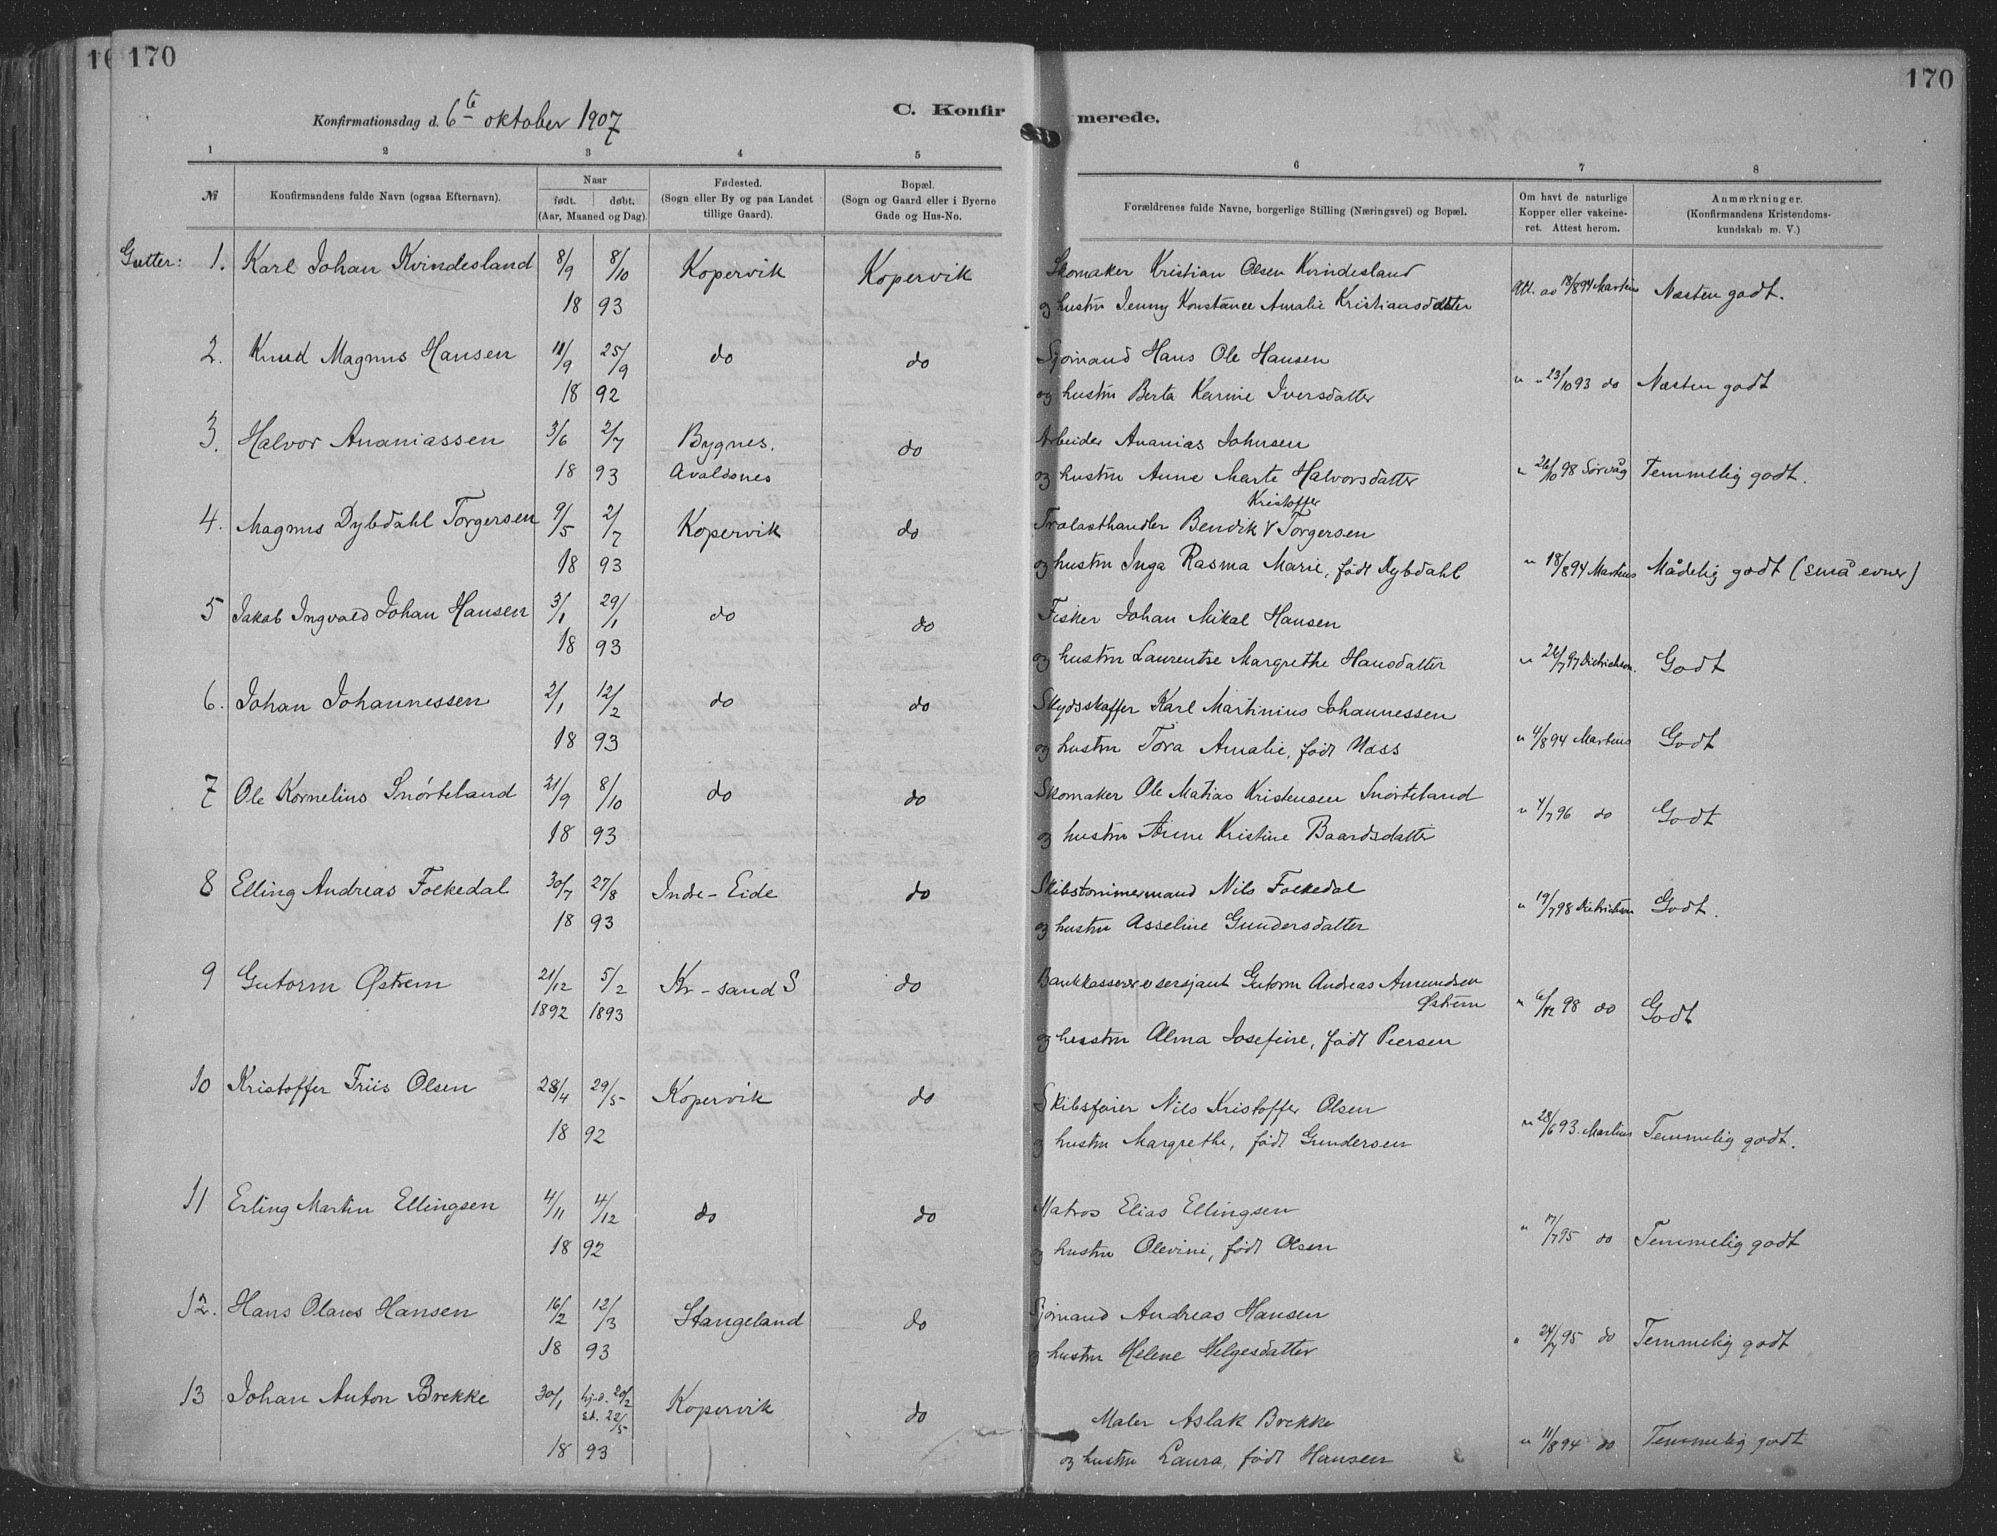 170
170
Konfirmationsdag d. 6te oktober 1907
C. Konfir
merede.
1 2 3 4 5 6 7 8
№
Konfirmandens fulde Navn (ogsaa Efternavn).
Naar
født. døbt.
(Aar, Maaned og Dag).
Fødested.
(Sogn eller By og paa Landet
tillige Gaard).
Bopæl.
(Sogn og Gaard eller i Byerne
Gade og Hus-No.
Forældrenes fulde Navne, borgerlige Stilling (Næringsvei) og Bopæl.
Om havt de naturlige
Kopper eller vakcine-
ret. Attest herom.
Anmærkninger.
(Konfirmandens Kristendoms-
kundskab m. V.)
Gutter: 1. Karl Johan Kvindesland 8/9 8/10 Kopervik Kopervik Skomaker Kristian Olsen Kvindesland
18 93 og hustru Jenny Konstance Amalie Kristiansdatter Att. av 18/8 94 Martens Næsten godt.
2. Knud Magnus Hansen 11/9 25/9 do do Sjømand Hans Ole Hansen
18 92 og hustru Berta Karine Iversdatter " " 23/10 93 do Næsten godt
3. Halvor Ananiassen 3/6 2/7 Bygnes. do Arbeider Ananias Johnsen
18 93 Avaldsnes og hustru Anne Marte Halvorsdatter " 26/10 98 Sørvåg Temmelig godt.
Kristoffer
4. Magnus Dybdahl Torgersen 9/5 2/7 Kopervik do Trælasthandler Bendik V Torgersen
18 93 og hustru Inga Rasma Marie, født Dybdahl " 18/8 94 Martens Mådelig godt (små evner)
5 Jakob Ingvald Johan Hansen 3/1 29/1 do do Fisker Johan Mikal Hansen
18 93 og hustru Laurentse Margrethe Hansdatter " 26/7 97 Dietrichson. Godt
6. Johan Johannessen 2/1 12/2 do do Skydsskaffer Karl Martinius Johannessen
18 93 og hustru Tora Amalie, født Næss " 4/8 94 Martens Godt
7 Ole Kornelius Snørteland 21/9 8/10 do do Skomaker Ole Matias Kristensen Snørteland
18 93 og hustru Anne Kristine Baardsdatter " 4/7 96 do Godt
8 Elling Andreas Folkedal 30/7 27/8 Indre-Eide do Skibstømmermand Nils Folkedal
18 93 og hustru Asseline Gundersdatter " 19/7 98 Dietrichson Godt.
9 Gutorm Østrem 21/12 5/2 Kr-sand S do Bankkasserer o sersjant Gutorm Andreas Amundsen
Østrem
1892 1893 " 6/12 98 do Godt
og hustru Alma Josefine, født Peersen
10 Kristoffer Friis Olsen 28/4 29/5 Kopervik do Skibsfører Nils Kristoffer Olsen
18 92 og hustru Margrethe, født Gundersen " 28/6 93. Martens Temmelig godt.
11 Erling Martin Ellingsen 4/11 4/12 do do Matros Elias Ellingsen
18 92 og hustru Olevine, født Olsen " 17/7 95 do Temmelig godt
12. Hans Olaus Hansen 16/2 12/3 Stangeland do Sjømand Andreas Hansen
18 93 og hustru Helene Helgesdatter " 24/7 95 do Temmelig godt
13 Johan Anton Brekke 30/1 hj.d. 20/2 Kopervik do Maler Aslak Brekke
st. 22/5
18 93 og hustru Laura, født Hansen " 11/8 94 do Temmelig godt